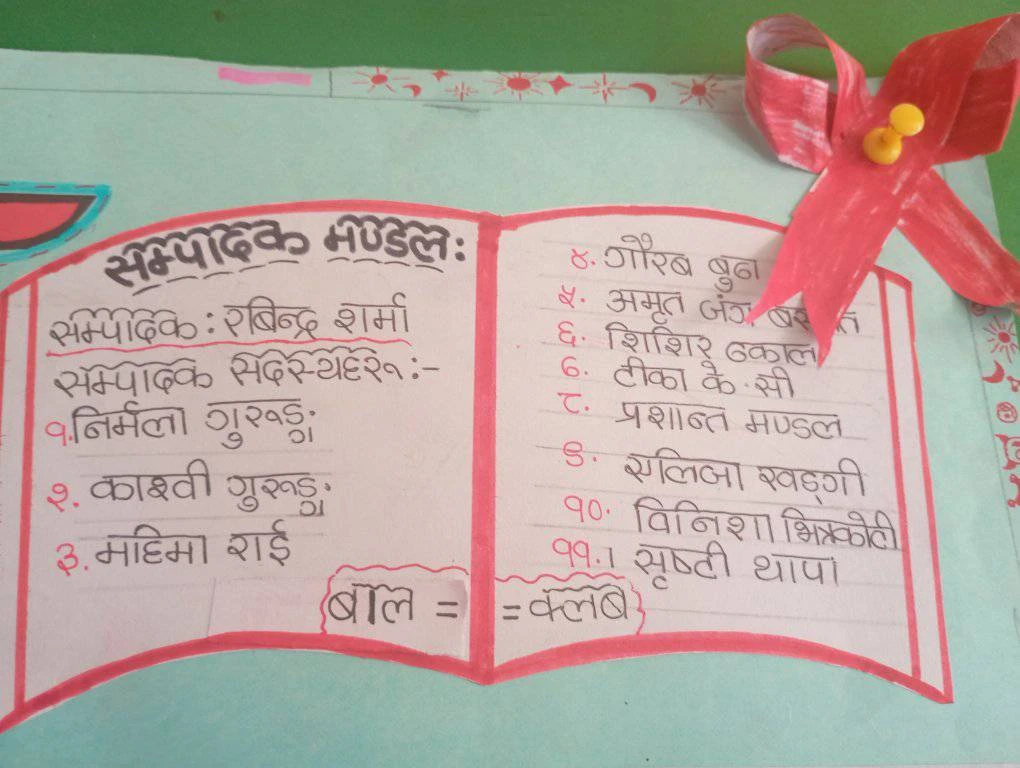 सम्पादक मण्डल:
सम्पादक : रबिन्द्र शर्मा
सम्पादक सदस्यहरू :-
१. निर्मला गुरुङ्ग
२. काश्वी गुरुङ्ग
३. महिमा राई
४. गौरब बुढा
५. अमृत जंग
६. शिशिर ढकाल
७. टीका के.सी
८. प्रशान्त मण्डल
९. एलिजा खड्गी
१०. विनिशा भित्रकोटी
११.। सृष्टी थापा
बाल = = क्लब